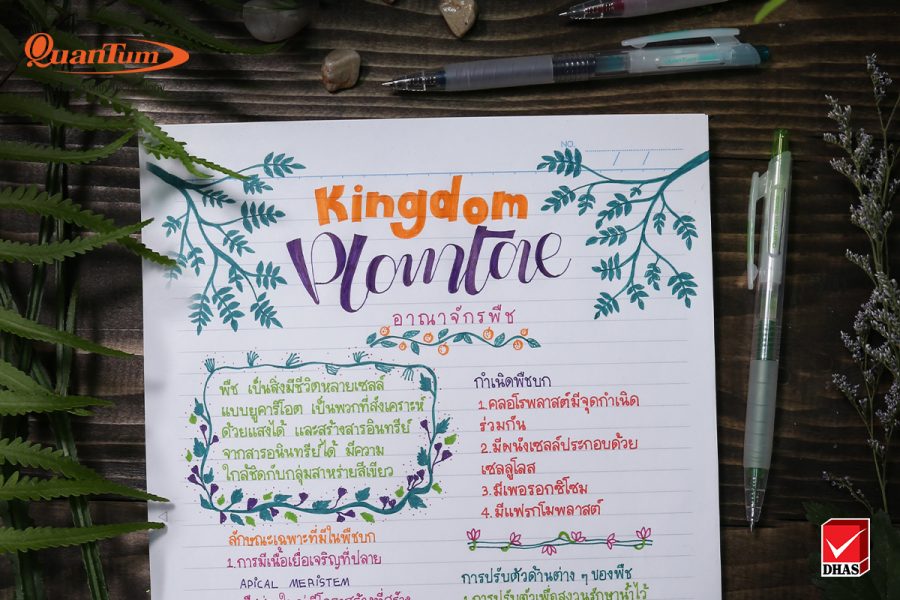 QuanTum
NO.
Kingdom
Plantae
อาณาจักรพืช
พืช เป็นสิ่งมีชีวิตหลายเซลล์
แบบยูคาริโอต เป็นพวกที่สังเคราะห์
ด้วยแสงได้ และสร้างสารอินทรีย์
จากสารอนินทรีย์ได้ มีความ
ใกล้ชิดกับกลุ่มสาหร่ายสีเขียว
ลักษณะเฉพาะที่มีในพืชบก
1.การมีเนื้อเยื่อเจริญที่ปลาย
APICAL MERISTEM
กำเนิดพืชบก
1.คลอโรพลาสต์มีจุดกำเนิด
ร่วมกัน
2.มีผนังเซลล์ประกอบด้วย
เซลลูโลส
3.มีเพอรอกซิโซม
4.มีแฟรกโมพลาสต์
การปรับตัวด้านต่าง ๆ ของพืช
1.การปรับตัวเพื่อสงวนรักษาน้ำไว้
DHAS